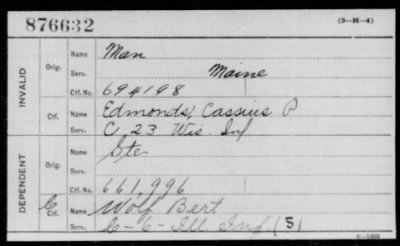 876632
(3-M-4)
INVALID
Orig.
Name Man
Serv. Maine
Ctf. No. 694198
Ctf.
Name Edmonds, Cassius P
Serv. C 23 Wis Inf
DEPENDENT
Orig.
Name Ste
Serv.
Ctf. No. 661,996
C
Ctf.
Name Wolf Bert
Serv. C-6-Ill Inf (S)